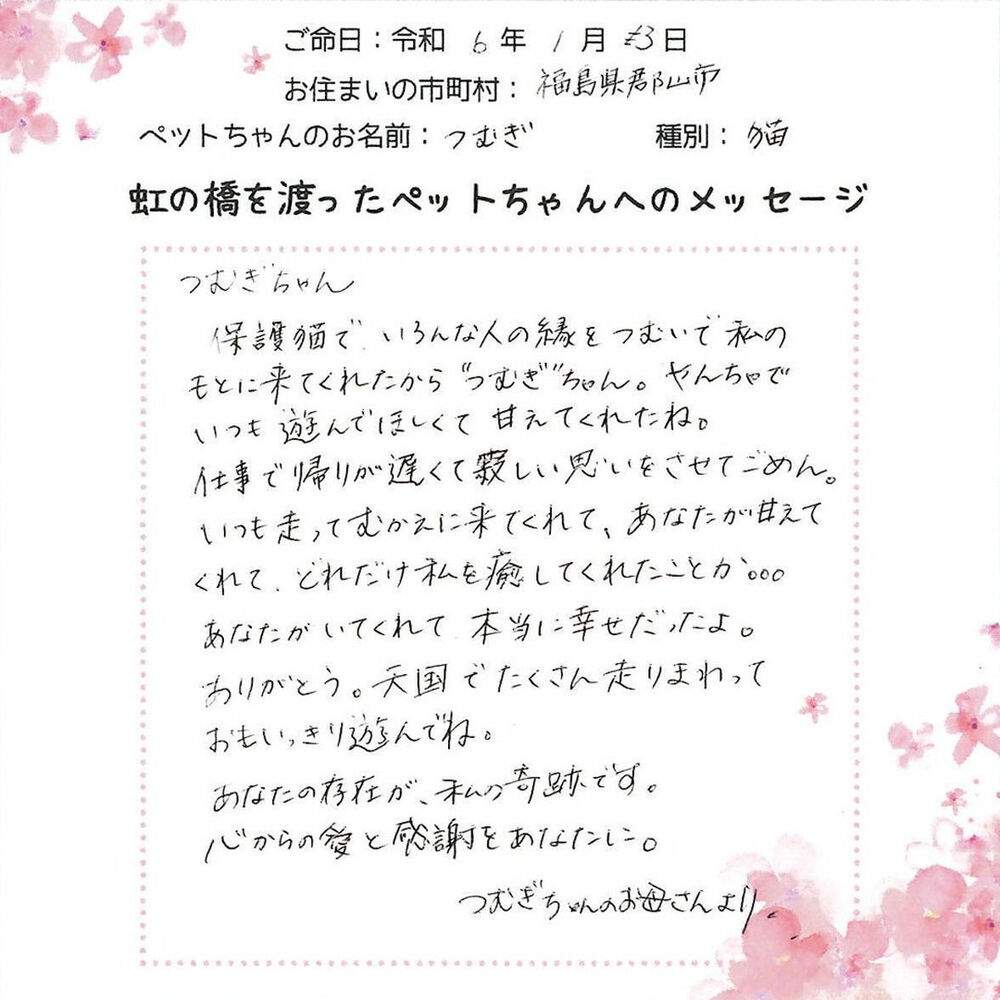 ご命日：令和 6年 1月 3日
お住まいの市町村：福島県郡山市
ペットちゃんのお名前：つむぎ 種別：猫
虹の橋を渡ったペットちゃんへのメッセージ
つむぎちゃん
保護猫で、いろんな人の縁をつむいで私の
もとに来てくれたから"つむぎ"ちゃん。やんちゃで
いつも遊んでほしくて甘えてくれたね。
仕事で帰りが遅くて寂しい思いをさせてごめん。
いつも走ってむかえに来てくれて、あなたが甘えて
くれて、どれだけ私を癒してくれたことか。。。
あなたがいてくれて、本当に幸せだったよ。
ありがとう。天国でたくさん走りまわって
おもいっきり遊んでね。
あなたの存在が、私の奇跡です。
心からの愛と感謝をあなたに。
つむぎちゃんのお母さんより